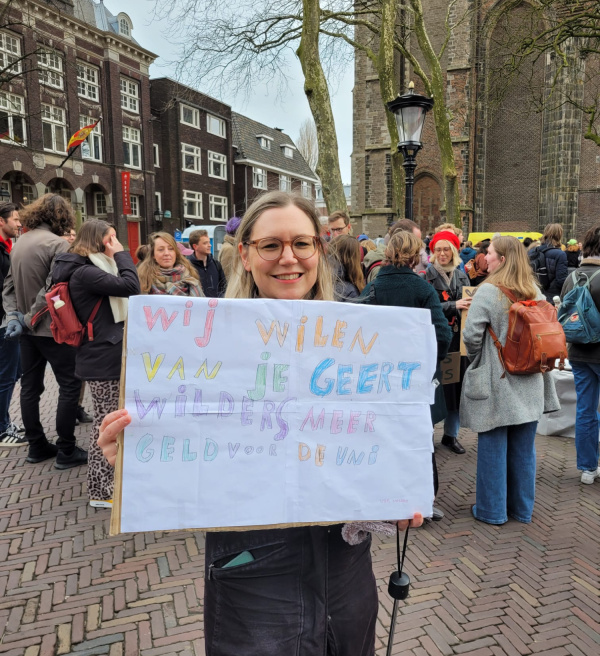 Wij WILEN
VAN je GEERT
WilDERS MEER
GELD VOOR DE UNI